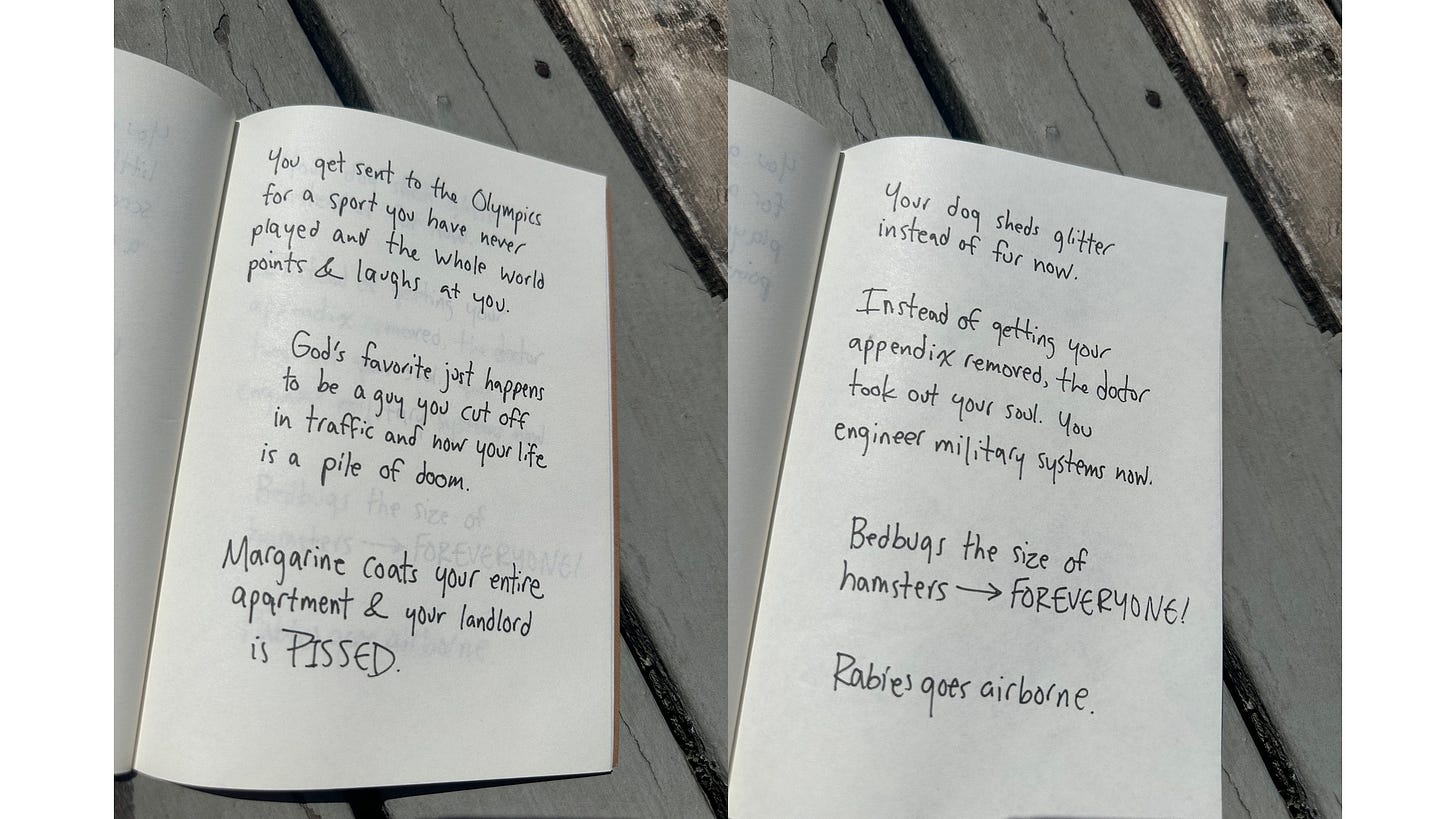 You get sent to the Olympics
for a sport you have never
played and the whole world
points & laughs at you.
God's favorite just happens
to be a guy you cut off
in traffic and now your life
is a pile of doom.
Margarine coats your entire
apartment & your landlord
is PISSED.
Your dog sheds glitter
instead of fur now.
Instead of getting your
appendix removed, the doctor
took out your soul. You
engineer military systems now.
Bedbugs the size of
hamsters → FOREVERYONE!
Rabies goes airborne.